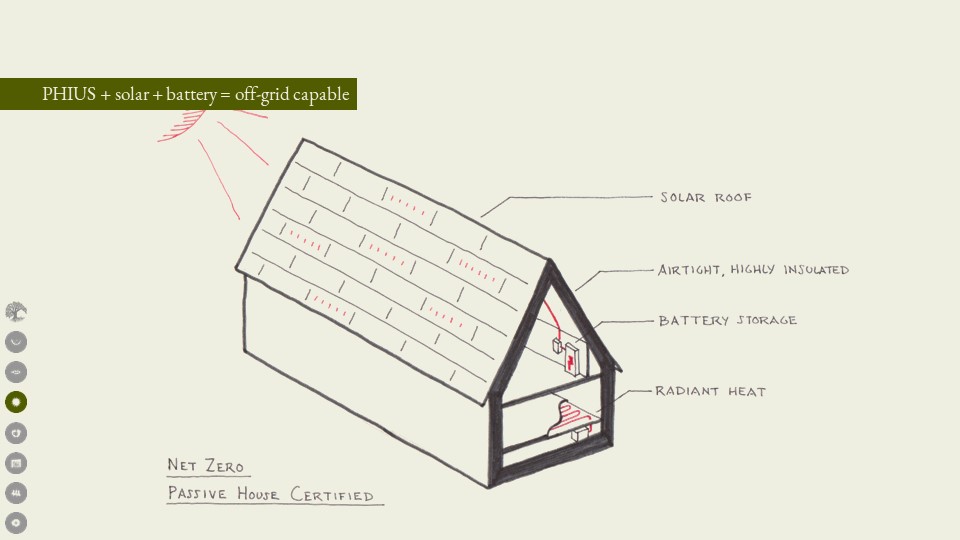 PHIUS + solar + battery = off-grid capable
SOLAR ROOF
AIRTIGHT, HIGHLY INSULATED
BATTERY STORAGE
RADIANT HEAT
NET ZERO
PASSIVE HOUSE CERTIFIED